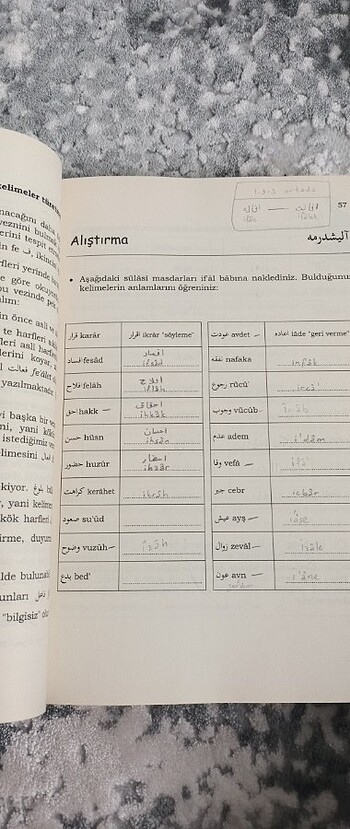 kelimeler türe
nacağını daha
veznini bulma
erini tespit e
in fe ف, ikind
fleri yerinde h
e göre okuyo
u vezinde pek
alım:
in önce asli v
te harfleri
fleri aslî harfle
lerini koyar,
l فعالت fe'âlet
yazılmaktadır
eyi başka bir ve
eni, yani kök
istediğimiz v
elimesini
kiyor. بلوغ bü
r, yani kelime
kök harfleri
irme, duyur
ilde bulunab
unları
"bilgisiz" olu
1.3.3 ortada
افاله — افالت
57
Alıştırma آلیشدرمه
• Aşağıdaki sülâsi masdarları if'âl bâbına naklediniz. Bulduğunuz
kelimelerin anlamlarını öğreniniz:
قرار karâr اقرار ikrâr "söyleme" عودت avdet اعاده iâde "geri verme"
فساد fesâd افساد ifsâd نفقه nafaka infâk
فلاح felâh افلاح iflâh رجوع rücû' ircâ'
حق hakk احقاق ihkâk وجوب vücûb îcâb
حسن hüsn احسان ihsân عدم adem i'dâm
حضور huzûr احضار ihzâr وفا vefâ îfâ
كراهت kerâhet ikrâh جبر cebr icbâr
صعود su'ûd عيش ayş iâşe
وضوح vuzûh îzâh زوال zevâl izâle
بدع bed' عون avn iâne